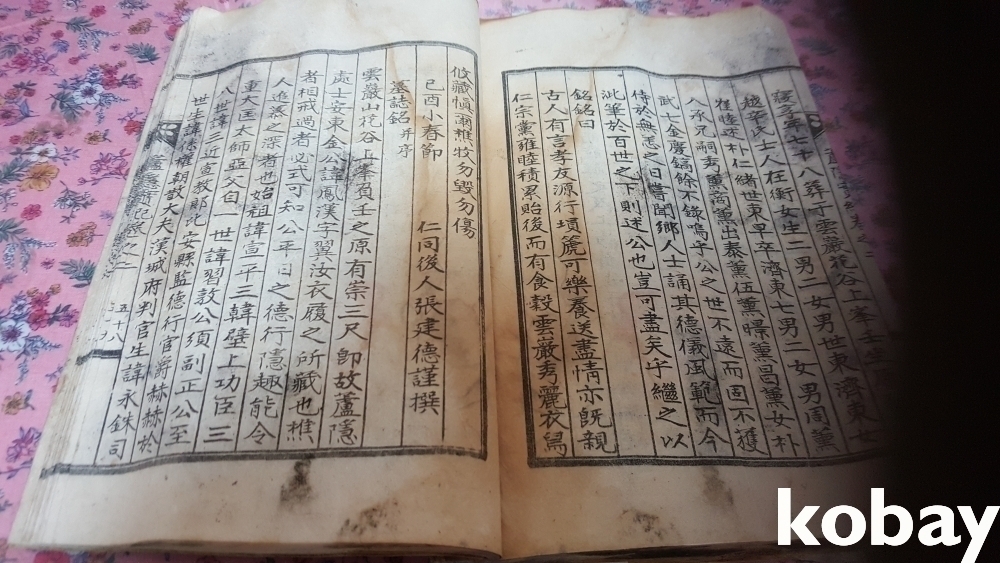 年七十八葬于雲巖花谷上峯壬
辛氏士人在衡女生二男二女男世東濟東七
朴仁緒世東早卒濟東七男二女男周薰
八承兄嗣 出泰薰伍薰曝薰昌薰女朴
武七全慶鎬餘不錄嗚乎公之世不遠而固不獲
侍於無恙之日嘗聞鄉人士誦其德儀風範而今
此筆於百世之下則述公也豈可盡矣乎繼之以
銘銘曰
古人有言孝友源行塤篪可樂養送盡情亦旣親
仁宗黨雍睦積累貽後而有食穀雲巖秀麗衣舃
攸藏愼爾樵牧勿毁勿傷
己酉小春節 仁同後人張建德謹撰
墓誌銘 并序
雲巖山花谷上峯負壬之原有崇三尺卽故蘆隱
處士安東金公諱鳳漢字翼汝衣履之所藏也樵
者相戒過者必式可知公平日之德行隱趣能令
人追慕之深者也始祖諱宣平三韓壁上功臣三
重大匡太師亞父自一世諱習敦公須副正公至
八世諱三近宣教郞比安縣監德行官爵赫赫於
世生諱係權朝散大夫漢城府判官生諱永銖司
五十八
kobay